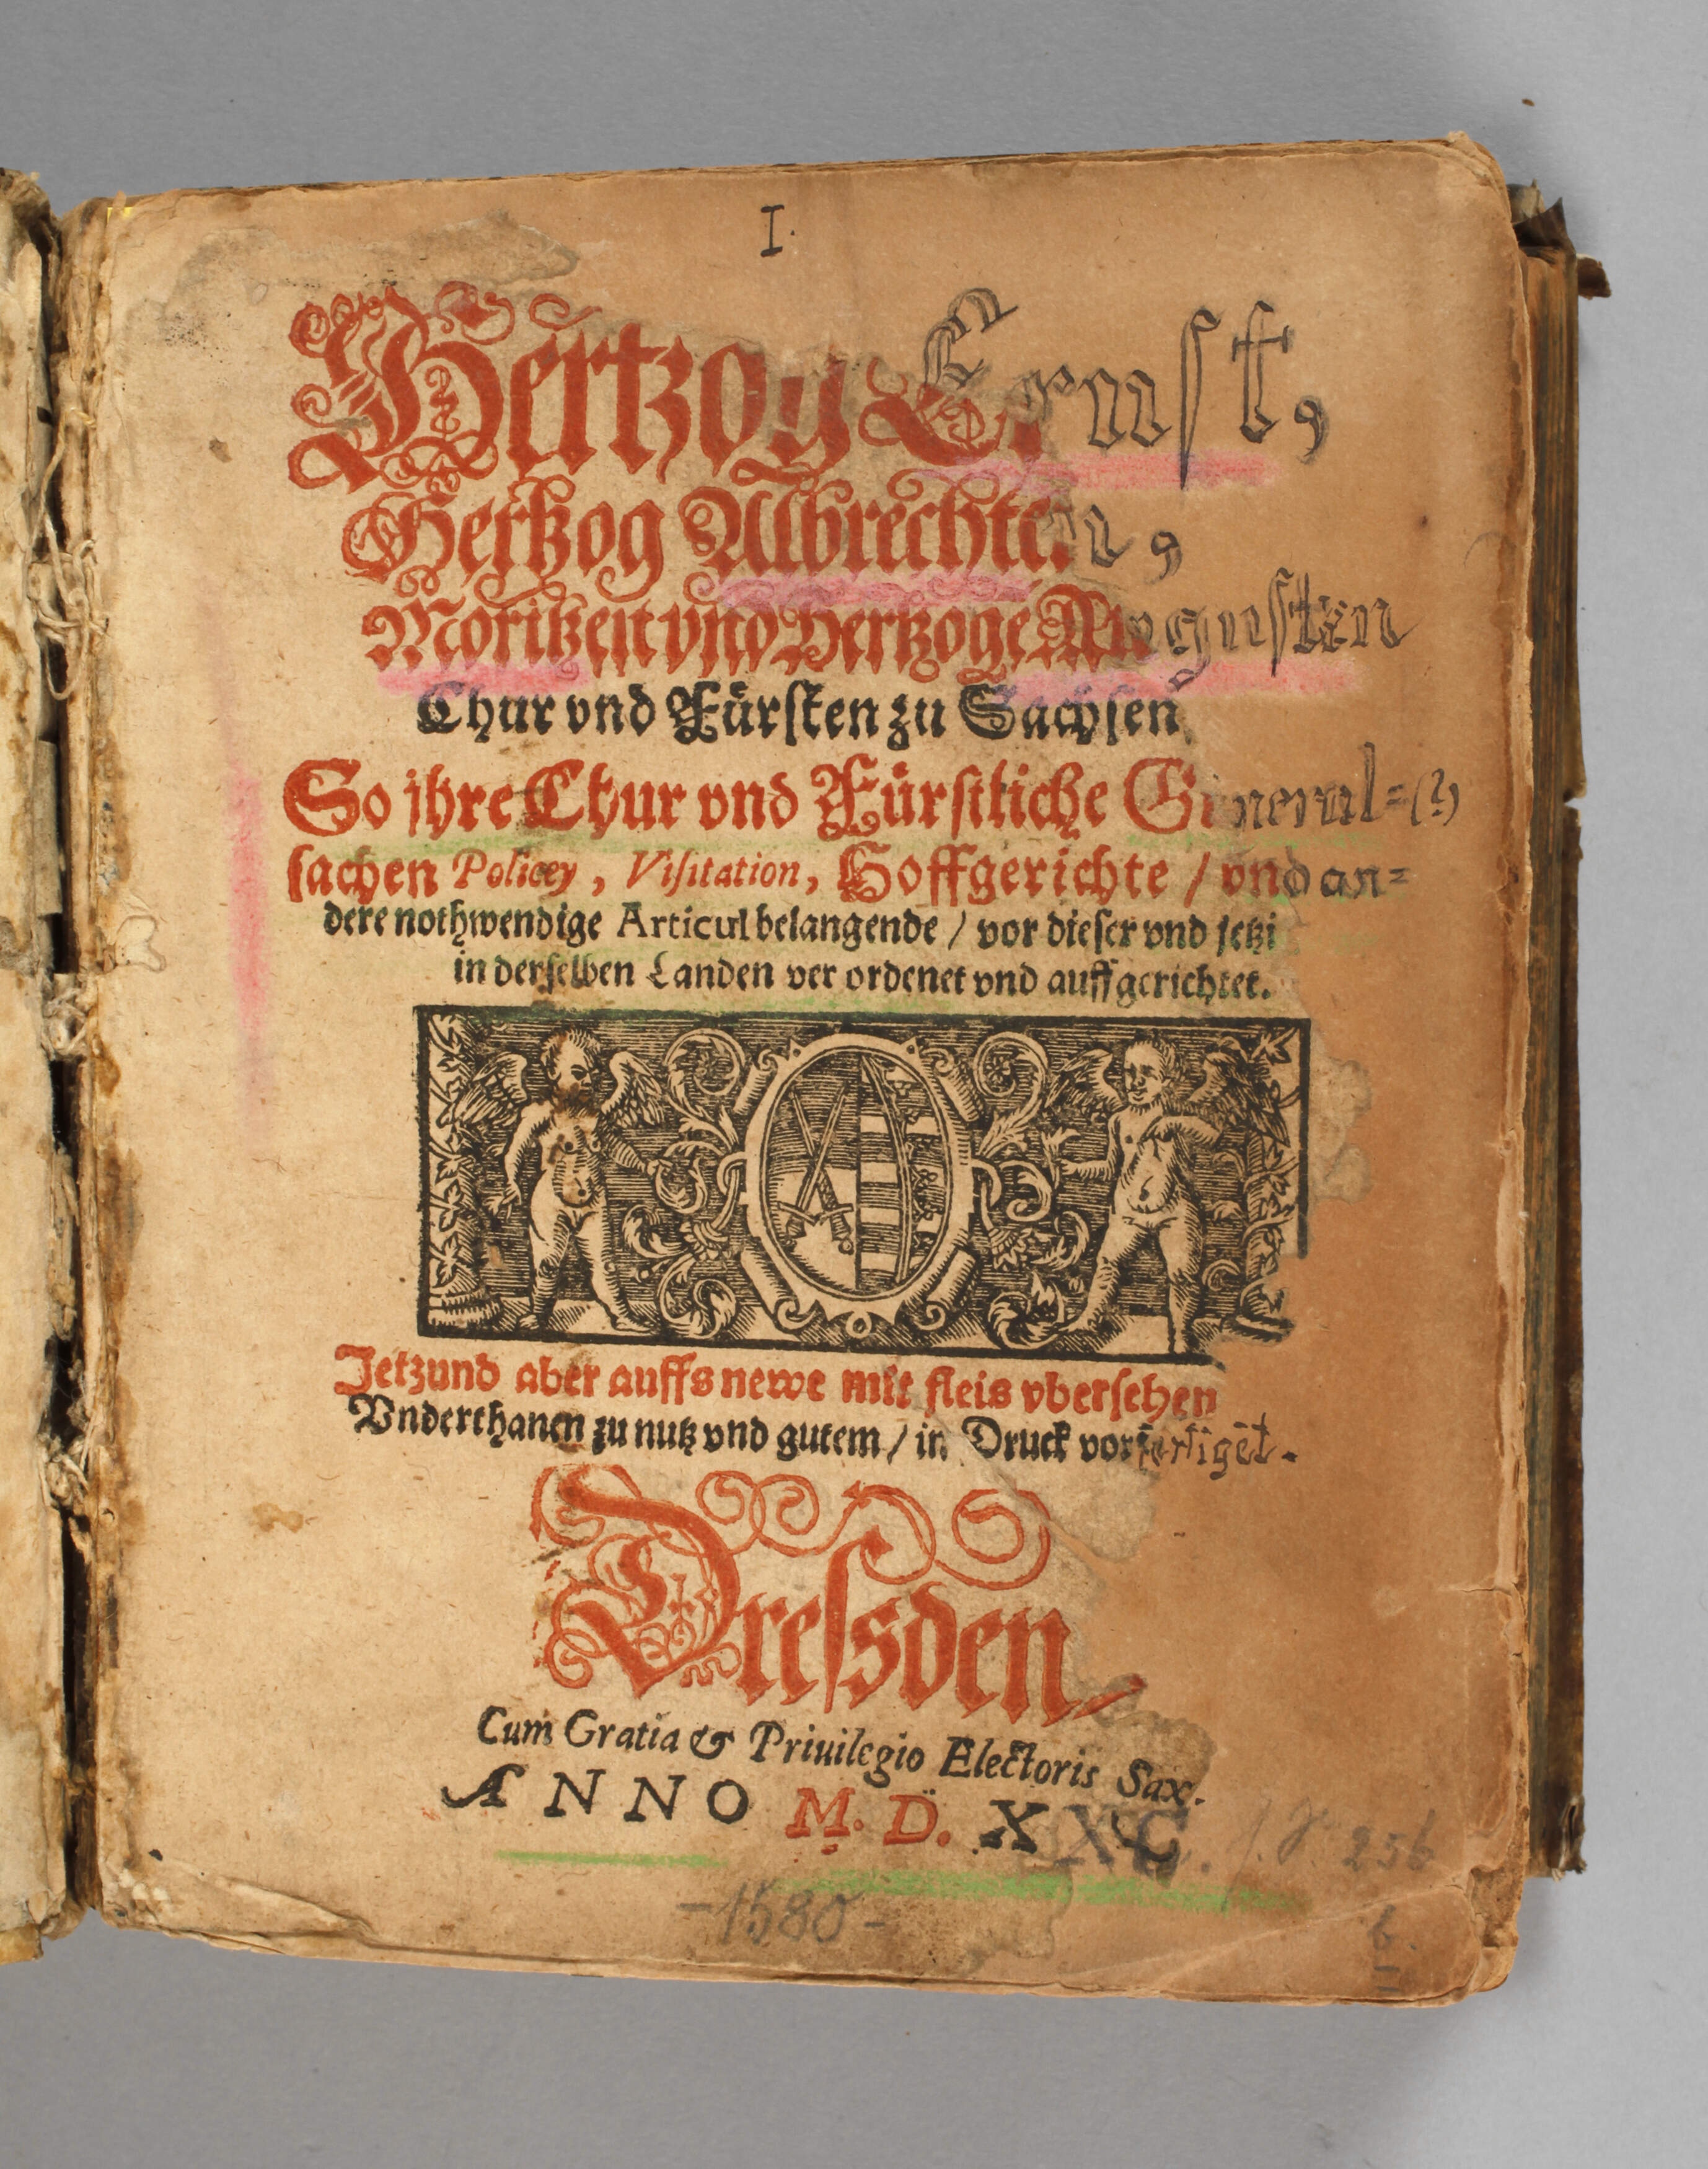 I.
Hertzog Ernst,
Hertzog Albrechten,
Moritzen vnd Hertzoge Augusten
Chur vnd Fürsten zu Sachsen
So ihre Chur vnd Fürstliche General=(?)
sachen Policey, Visitation, Hoffgerichte / vnd an=
dere nothwendige Articul belangende / vor dieser vnd jetzi
in derselben Landen ver ordenet vnd auffgerichtet.
Jetzund aber auffs newe mit fleis vbersehen
Vnderthanen zu nutz vnd gutem / in Druck vorfertiget.
Dreſsden
Cum Gratia & Priuilegio Electoris Sax.
ANNO M. D. XXC.
256
-1580-